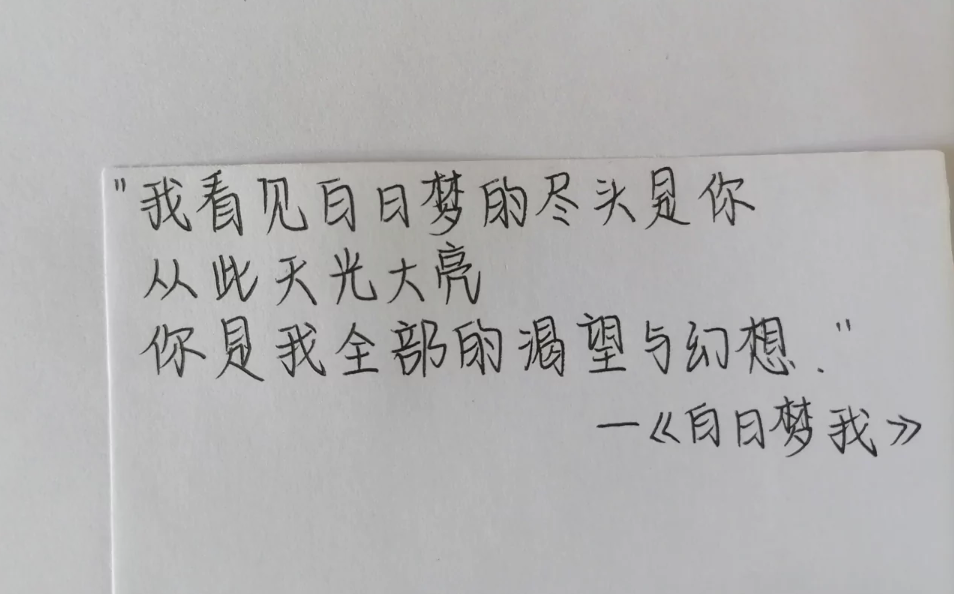 "我看见白日梦的尽头是你
从此天光大亮
你是我全部的渴望与幻想."
—《白日梦我》